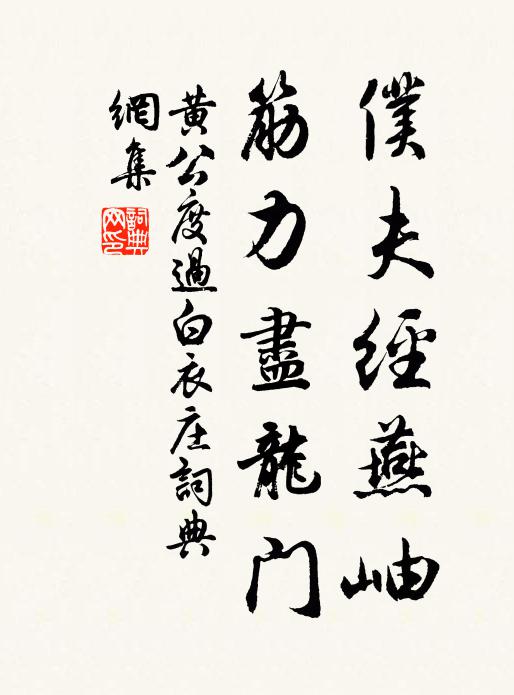 僕夫經燕岫
筋力盡龍门
黄公度過白衣庄詞典
網集
詞典
网印